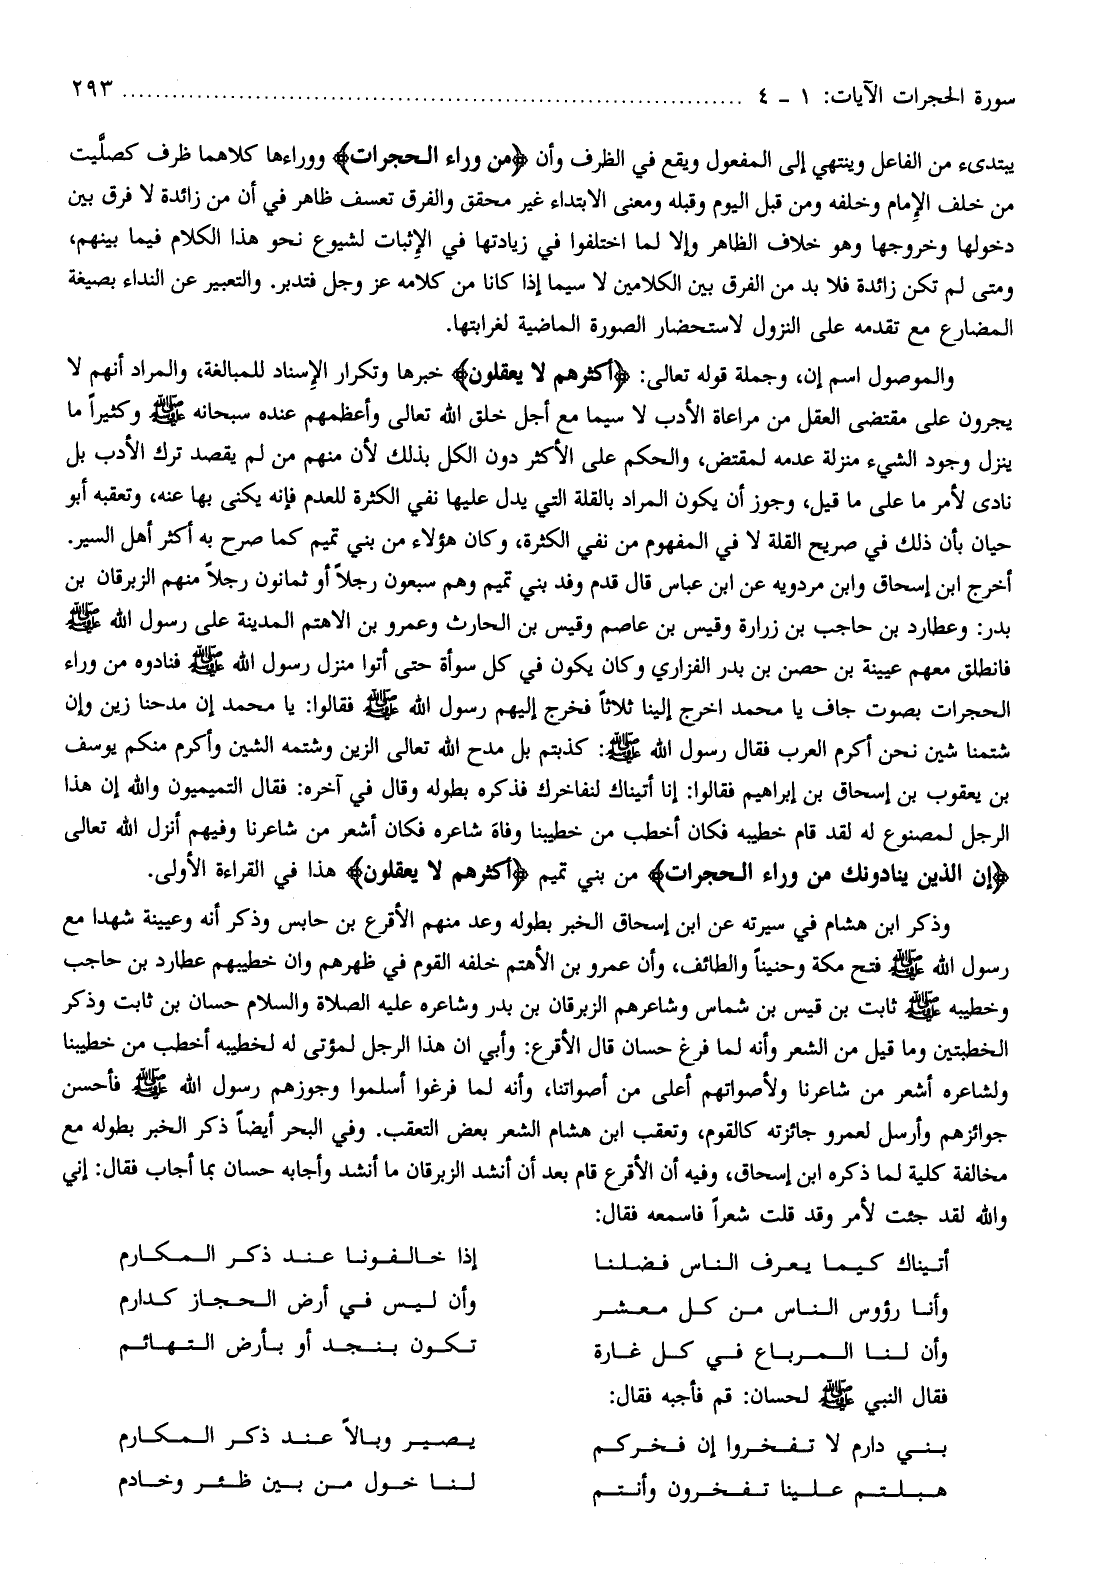 سورة الحجرات الآيات: ١ - ٤ ........................................................................ ٢٩٣
يبتدىء من الفاعل وينتهي إلى المفعول ويقع في الظرف وأن ﴿من وراء الحجرات﴾ ووراءها كلاهما ظرف كصلَّيت
من خلف الإمام وخلفه ومن قبل اليوم وقبله ومعنى الابتداء غير محقق والفرق تعسف ظاهر في أن من زائدة لا فرق بين
دخولها وخروجها وهو خلاف الظاهر وإلا لما اختلفوا في زيادتها في الإثبات لشيوع نحو هذا الكلام فيما بينهم،
ومتى لم تكن زائدة فلا بد من الفرق بين الكلامين لا سيما إذا كانا من كلامه عز وجل فتدبر. والتعبير عن النداء بصيغة
المضارع مع تقدمه على النزول لاستحضار الصورة الماضية لغرابتها.
والموصول اسم إن، وجملة قوله تعالى: ﴿أكثرهم لا يعقلون﴾ خبرها وتكرار الإسناد للمبالغة، والمراد أنهم لا
يجرون على مقتضى العقل من مراعاة الأدب لا سيما مع أجل خلق الله تعالى وأعظمهم عنده سبحانه ﷺ وكثيراً ما
ينزل وجود الشيء منزلة عدمه لمقتض، والحكم على الأكثر دون الكل بذلك لأن منهم من لم يقصد ترك الأدب بل
نادى لأمر ما على ما قيل، وجوز أن يكون المراد بالقلة التي يدل عليها نفي الكثرة للعدم فإنه يكنى بها عنه، وتعقبه أبو
حيان بأن ذلك في صريح القلة لا في المفهوم من نفي الكثرة، وكان هؤلاء من بني تميم كما صرح به أكثر أهل السير.
أخرج ابن إسحاق وابن مردويه عن ابن عباس قال قدم وفد بني تميم وهم سبعون رجلاً أو ثمانون رجلاً منهم الزبرقان بن
بدر: وعطارد بن حاجب بن زرارة وقيس بن عاصم وقيس بن الحارث وعمرو بن الاهتم المدينة على رسول الله ﷺ
فانطلق معهم عيينة بن حصن بن بدر الفزاري وكان يكون في كل سوأة حتى أتوا منزل رسول الله ﷺ فنادوه من وراء
الحجرات بصوت جاف يا محمد اخرج إلينا ثلاثاً فخرج إليهم رسول الله ﷺ فقالوا: يا محمد إن مدحنا زين وإن
شتمنا شين نحن أكرم العرب فقال رسول الله ﷺ: كذبتم بل مدح الله تعالى الزين وشتمه الشين وأكرم منكم يوسف
بن يعقوب بن إسحاق بن إبراهيم فقالوا: إنا أتيناك لنفاخرك فذكره بطوله وقال في آخره: فقال التميميون والله إن هذا
الرجل لمصنوع له لقد قام خطيبه فكان أخطب من خطيبنا وفاة شاعره فكان أشعر من شاعرنا وفيهم أنزل الله تعالى
﴿إن الذين ينادونك من وراء الحجرات﴾ من بني تميم ﴿أكثرهم لا يعقلون﴾ هذا في القراءة الأولى.
وذكر ابن هشام في سيرته عن ابن إسحاق الخبر بطوله وعد منهم الأقرع بن حابس وذكر أنه وعيينة شهدا مع
رسول الله ﷺ فتح مكة وحنيناً والطائف، وأن عمرو بن الأهتم خلفه القوم في ظهرهم وان خطيبهم عطارد بن حاجب
وخطيبه ﷺ ثابت بن قيس بن شماس وشاعرهم الزبرقان بن بدر وشاعره عليه الصلاة والسلام حسان بن ثابت وذكر
الخطبتين وما قيل من الشعر وأنه لما فرغ حسان قال الأقرع: وأبي ان هذا الرجل لمؤتى له لخطيبه أخطب من خطيبنا
ولشاعره أشعر من شاعرنا ولأصواتهم أعلى من أصواتنا، وأنه لما فرغوا أسلموا وجوزهم رسول الله ﷺ فأحسن
جوائزهم وأرسل لعمرو جائزته كالقوم، وتعقب ابن هشام الشعر بعض التعقب. وفي البحر أيضاً ذكر الخبر بطوله مع
مخالفة كلية لما ذكره ابن إسحاق، وفيه أن الأقرع قام بعد أن أنشد الزبرقان ما أنشد وأجابه حسان بما أجاب فقال: إني
والله لقد جئت لأمر وقد قلت شعراً فاسمعه فقال:
أتيناك كيما يعرف الناس فضلنا إذا خالفونا عند ذكر المكارم
وأنا رؤوس الناس من كل معشر وأن ليس في أرض الحجاز كدارم
وأن لنا المرباع في كل غارة تكون بنجد أو بأرض التهائم
فقال النبي ﷺ لحسان: قم فأجبه فقال:
بني دارم لا تفخروا إن فخركم يصير وبالاً عند ذكر المكارم
هبلتم علينا تفخرون وأنتم لنا خول من بين ظئر وخادم